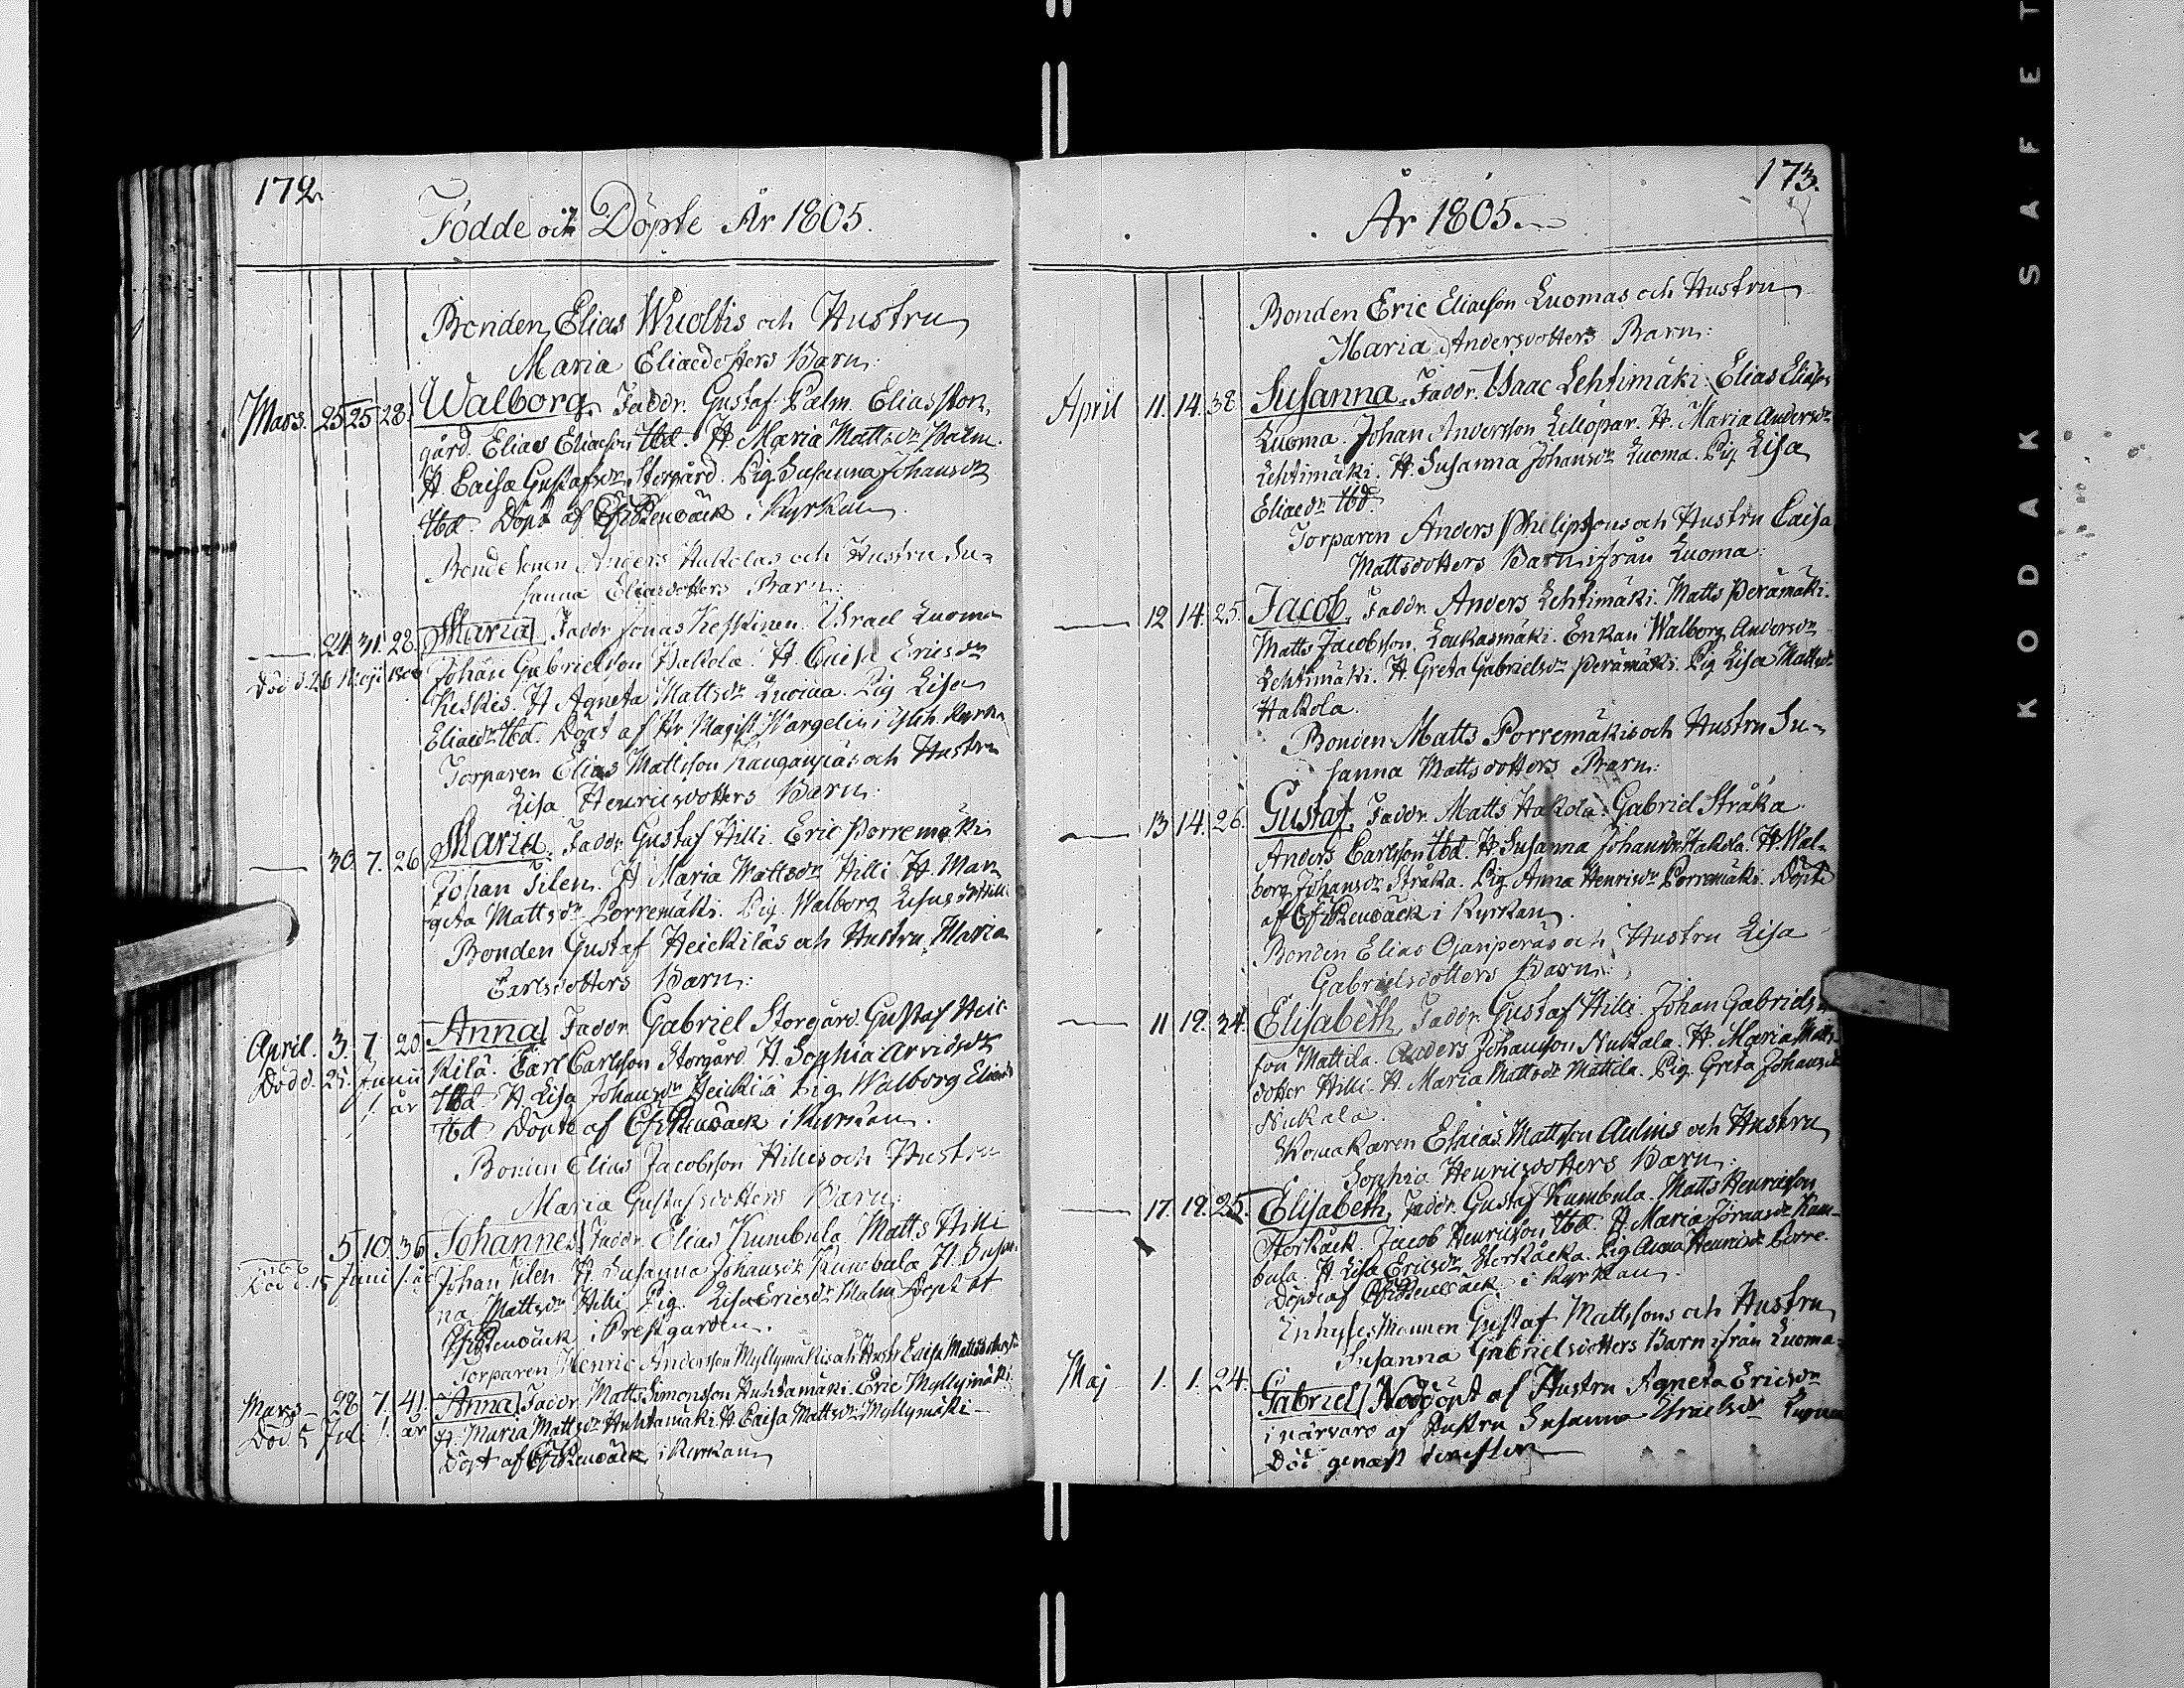 172.
Födde och Döpte År 1805.
Bonden Elias Wuoltis och Hustru
Maria Eliaedotters Barn:
Mars. 25 25 28. Walborg. Faddr. Gustaf Palm. Elias Stor-
gård. Elias Eliaeson Ibd. H. Maria Mattsdr Palm.
H. Caisa Gustafsdr Storgård. Pig. Susanna Johansdr
Ibd. Döpt af i Kyrkan.
Bondesonen Anders Hakolas och Hustru Su-
sanna Eliaedotters Barn:
24. 31. 28. Maria Faddr Jonas Keskinen. Israel Luoma
Död d. 26 Maji Johan Gabrielsson Hakola. H. Caisa Ericsdr
Keskis. H Agneta Mattsdr Luoma. Pig Lisa
Eliaedr Ibd. Döpt af Hr Magist. Wargelin i Kyrk.
Torparen Elias Mattsson Kauganpäs och Hustru
Lisa Henricsdotters Barn:
30. 7. 26. Maria. Faddr Gustaf Hilli. Eric Porremäki
Johan Tilen. H Maria Mattsdr Hilli. H. Mar-
geta Mattsdr Porremäki. Pig. Walborg
Bonden Gustaf Heickiläs och Hustru Maria
Carlsdotters Barn:
April. 3. 7. 20. Anna Faddr. Gabriel Storgård. Gustaf Heic-
Död d. 25. Junii kilä. Carl Carlsson Storgård. H. Sophia Arvidsdr
1. år Ibd. H. Lisa Johansdr Heickilä Pig. Walborg Eliaedr
Ibd. Döpte af i Kyrkan.
Bonden Elias Jacobsson Hillis och Hustru
Maria Gustafsdotters Barn:
5. 10. 36 Johannes Faddr. Elias Kumbula Matts Hilli
Död d. 15 Junii Johan Tilen. H. Susanna Johansdr Kumbula H. Susan-
na Mattsdr Hilli Pig. Lisa Ericsdr Malm Döpt af
i Prestgården.
Torparen Henric Andersson Myllymäkis och Hustr Caisa Mattsdotters
Mars 28 7. 41. Anna Faddr Matts Simonsson Huhtamäki. Eric Myllymäki
Död 5 Juli 1. år H. Maria Mattsdr Huhtamäki. H Caisa Mattsdr Myllymäki
Döpt af i Kyrkan
173.
År 1805.
Bonden Eric Eliaeson Luomas och Hustru
Maria Andersdotters Barn:
April 11. 14. 38 Susanna. Faddr. Isaac Lehtimäki. Elias Eliaeson
Luoma. Johan Andersson Liliöpar. H. Maria Andersdr
Lehtimäki. H. Susanna Johansdr Luoma. Pig Lisa
Eliaedr Ibd.
Torparen Anders Philipsons och Hustru Caisa
Mattsdotters Barn ifrån Luoma:
12 14. 25. Jacob. Faddr. Anders Lehtimäki. Matts Perämäki.
Matts Jacobsson. Loukasmäki. Enkan Walborg Andersdr
Lehtimäki. H. Greta Gabrielsdr Perämäki. Pig Lisa Mattsdr
Hakola.
Bonden Matts Porremäkis och Hustru Su-
sanna Mattsdotters Barn:
13 14. 26. Gustaf. Faddr. Matts Hakola. Gabriel Stråka
Anders Carlsson Ibd. H. Susanna Johansdr Hakola. H. Wal-
borg Johansdr Stråka. Pig Anna Henricsdr Porremäki. Döpte
af i Kyrkan.
Bonden Elias Ojanperäs och Hustru Lisa
Gabrielsdotters Barn:
11 19. 34. Elisabeth. Faddr. Gustaf Hilli. Johan Gabriels-
son Mattila. Anders Johansson Nukala. H. Maria Matts-
dotter Hilli. H. Maria Mattsdr Mattila. Pig. Greta Johansdr
Nukala.
Skomakaren Eliaias Mattsson Aulins och Hustru
Sophia Henricsdotters Barn:
17. 19. 25. Elisabeth. Faddr. Gustaf Kumbula. Matts Henricsson
Storkåck. Jacob Henricsson Ibd. H. Maria Jöransdr Kum-
bula. H. Lisa Ericsdr Storkåcka. Pig Anna Henricsdr Porre-
Döpte af i Kyrkan.
Inhyses Mannen Gustaf Mattssons och Hustru
Susanna Gabrielsdotters Barn ifrån Luoma:
Maj 1. 1. 24. Gabriel Nöddöpt af Hustru Agneta Ericsdr
i närvaro af Hustru Susanna Israelsdr Luoma
Död genast derefter
KODAK SAFET